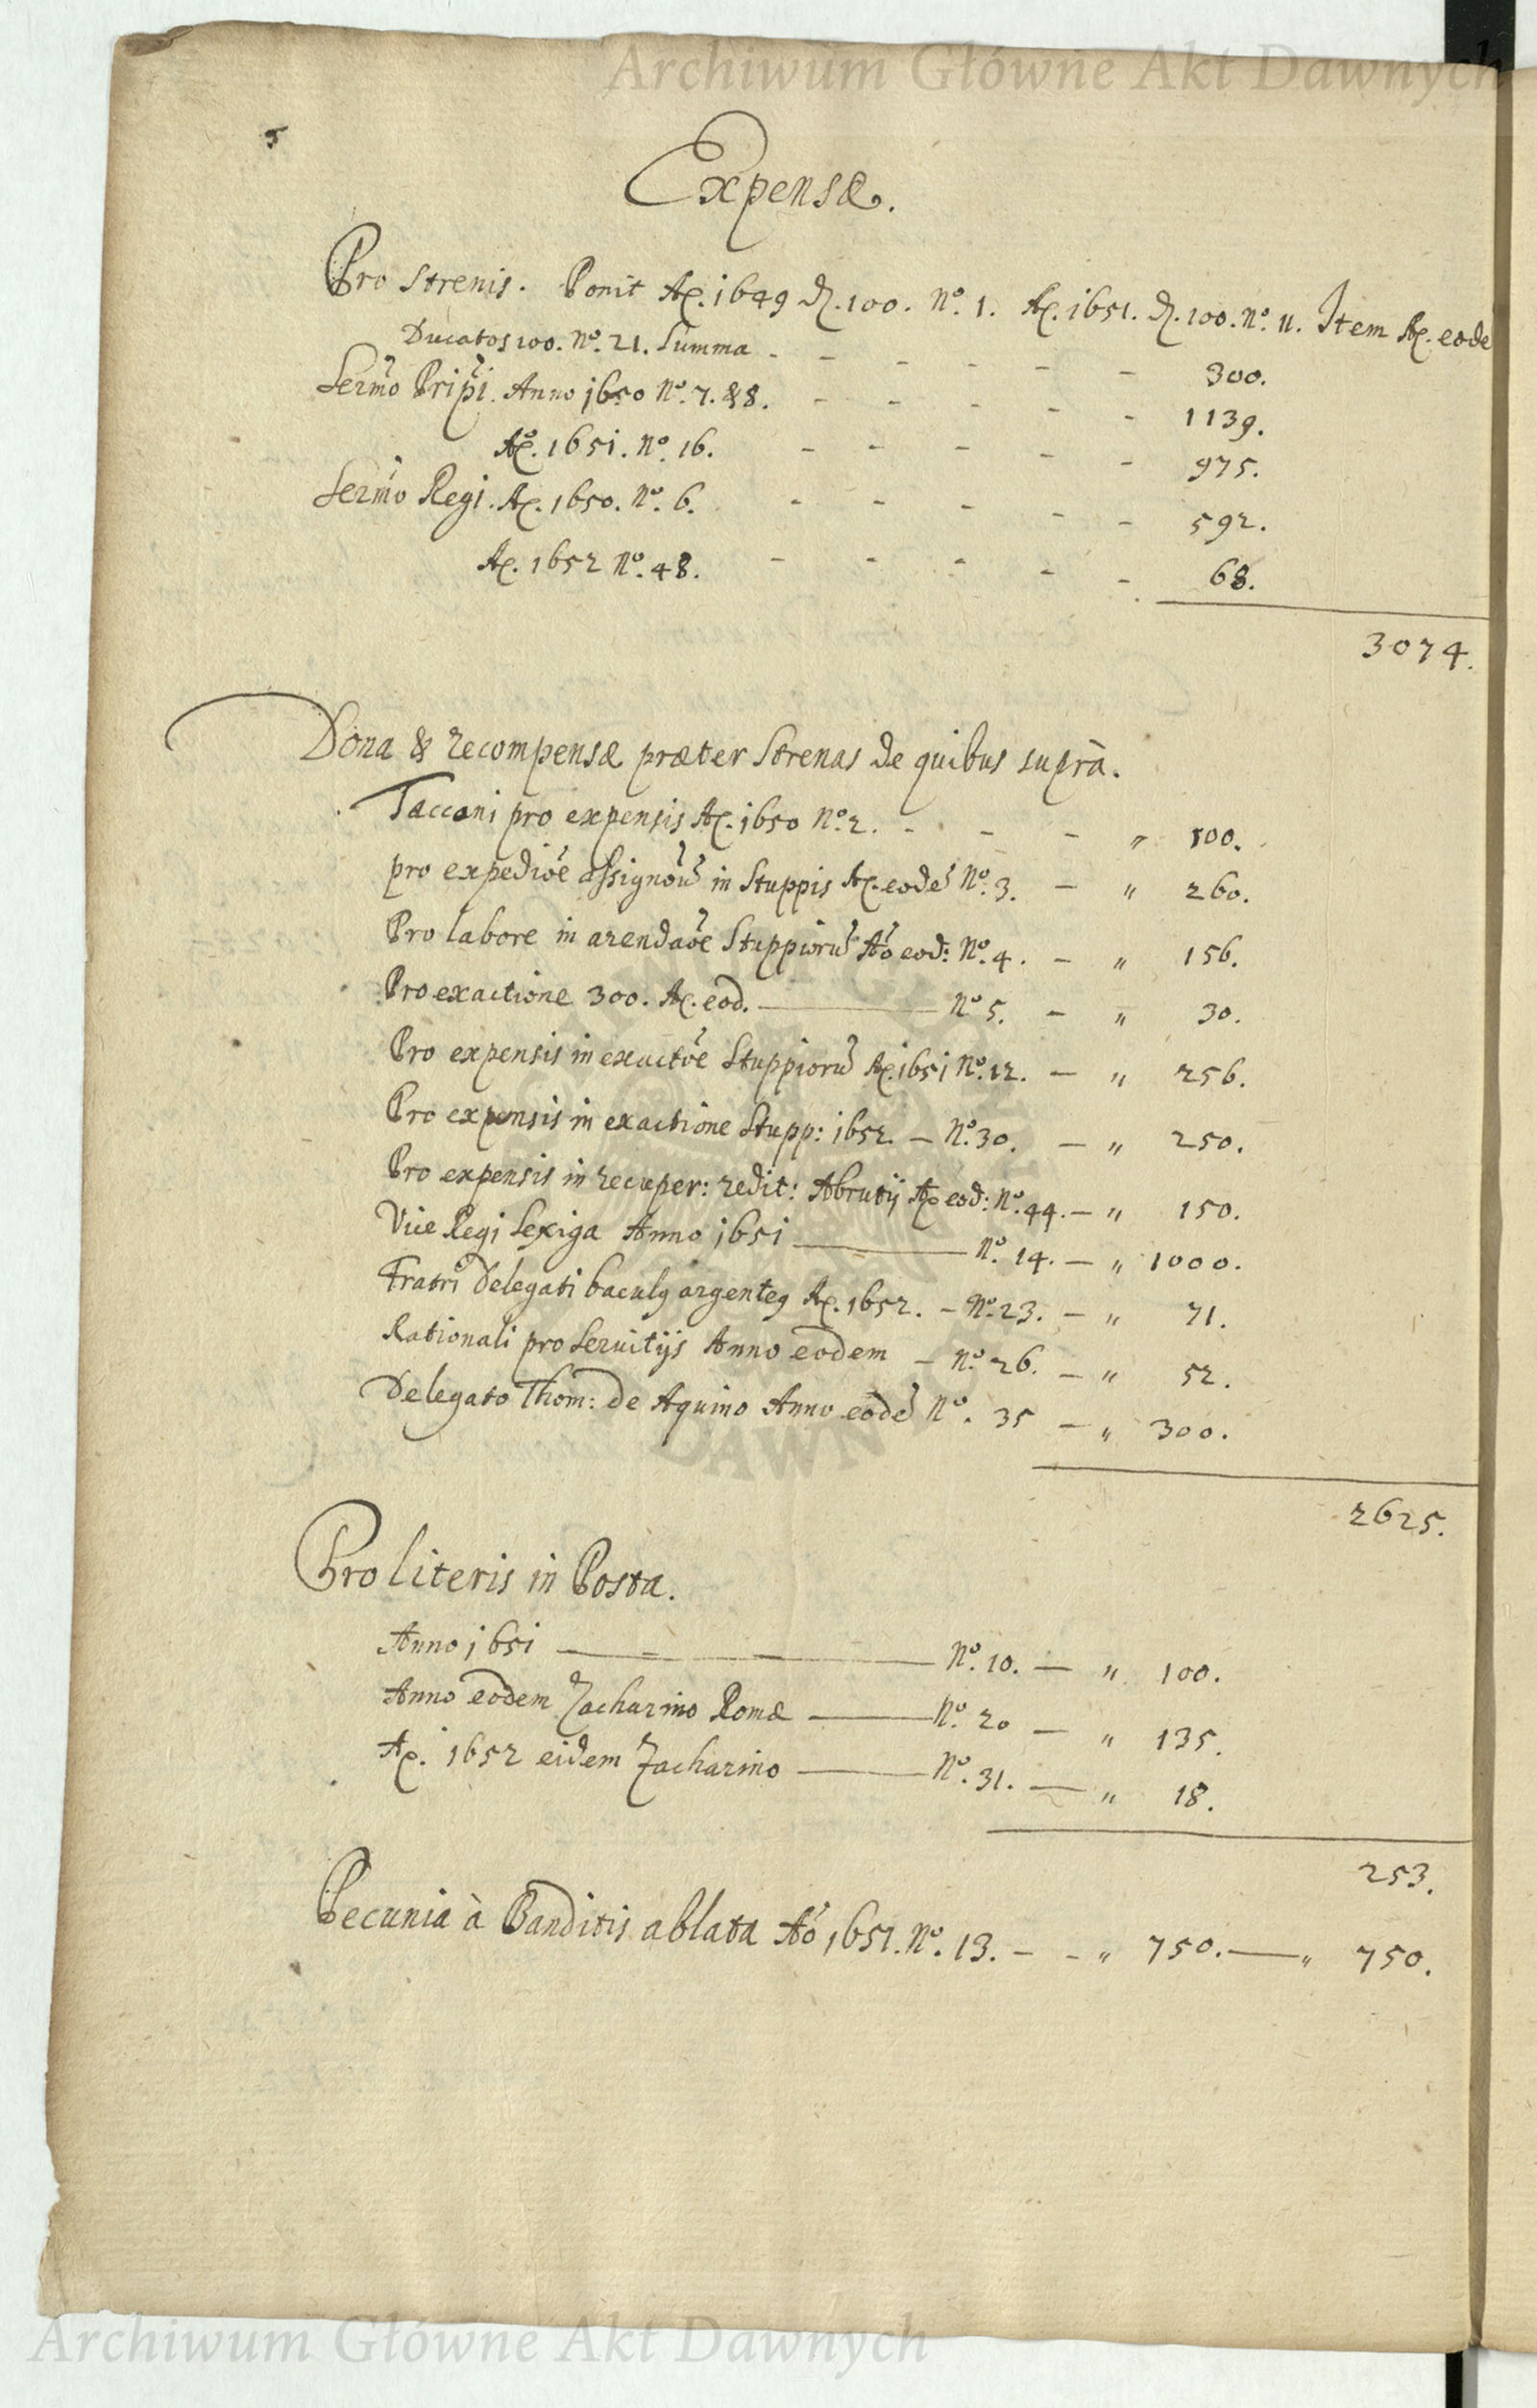 Archiwum Główne Akt Dawnych
5
Expensæ.
Pro Strenis. Ponit Aº. 1649 D. 100. Nº. 1. Aº. 1651. D. 100. Nº. 11. Item Aº. eode
Ducatos 100. Nº. 21. Summa - - - - - - 300.
Sermo Pripi. Anno 1650 Nº. 7. & 8. - - - - - 1139.
Aº. 1651. Nº. 16. - - - - - 975.
Sermo Regi. Aº. 1650. Nº. 6. - - - - - 592.
Aº. 1652 Nº. 48. - - - - - 68.
3074.
Dona & recompensæ præter Strenas de quibus suprà.
Taccani pro expensis Aº. 1650 Nº. 2. - - - " 100.
pro expedioe assignou in Stuppis Aº. eode Nº. 3. - " 260.
Pro labore in arendaoe Stuppioru Aº eod: Nº. 4. - " 156.
Pro exactione 300. Aº. eod. — Nº 5. - " 30.
Pro expensis in exactoe Stuppioru Aº. 1651 Nº. 12. - " 256.
Pro expensis in exactione Stupp: 1652. - Nº. 30. - " 250.
Pro expensis in recuper: redit: Abrutij Aº eod: Nº. 44. - " 150.
Vice Regi Lexiga Anno 1651 — Nº. 14. - " 1000.
Fratri Delegati baculg argenteg Aº. 1652. - Nº. 23. - " 71.
Rationali pro Servitijs Anno eodem - Nº. 26. - " 52.
Delegato Thom: de Aquino Anno eode Nº. 35 - " 300.
2625.
Pro literis in Posta.
Anno 1651 — Nº. 10. - " 100.
Anno eodem Zacharino Romæ — Nº. 20 - " 135.
Aº. 1652 eidem Zacharino — Nº. 31. - " 18.
253.
Pecunia à Banditis ablata Aº 1651. Nº. 13. - - " 750. — " 750.
Archiwum Główne Akt Dawnych